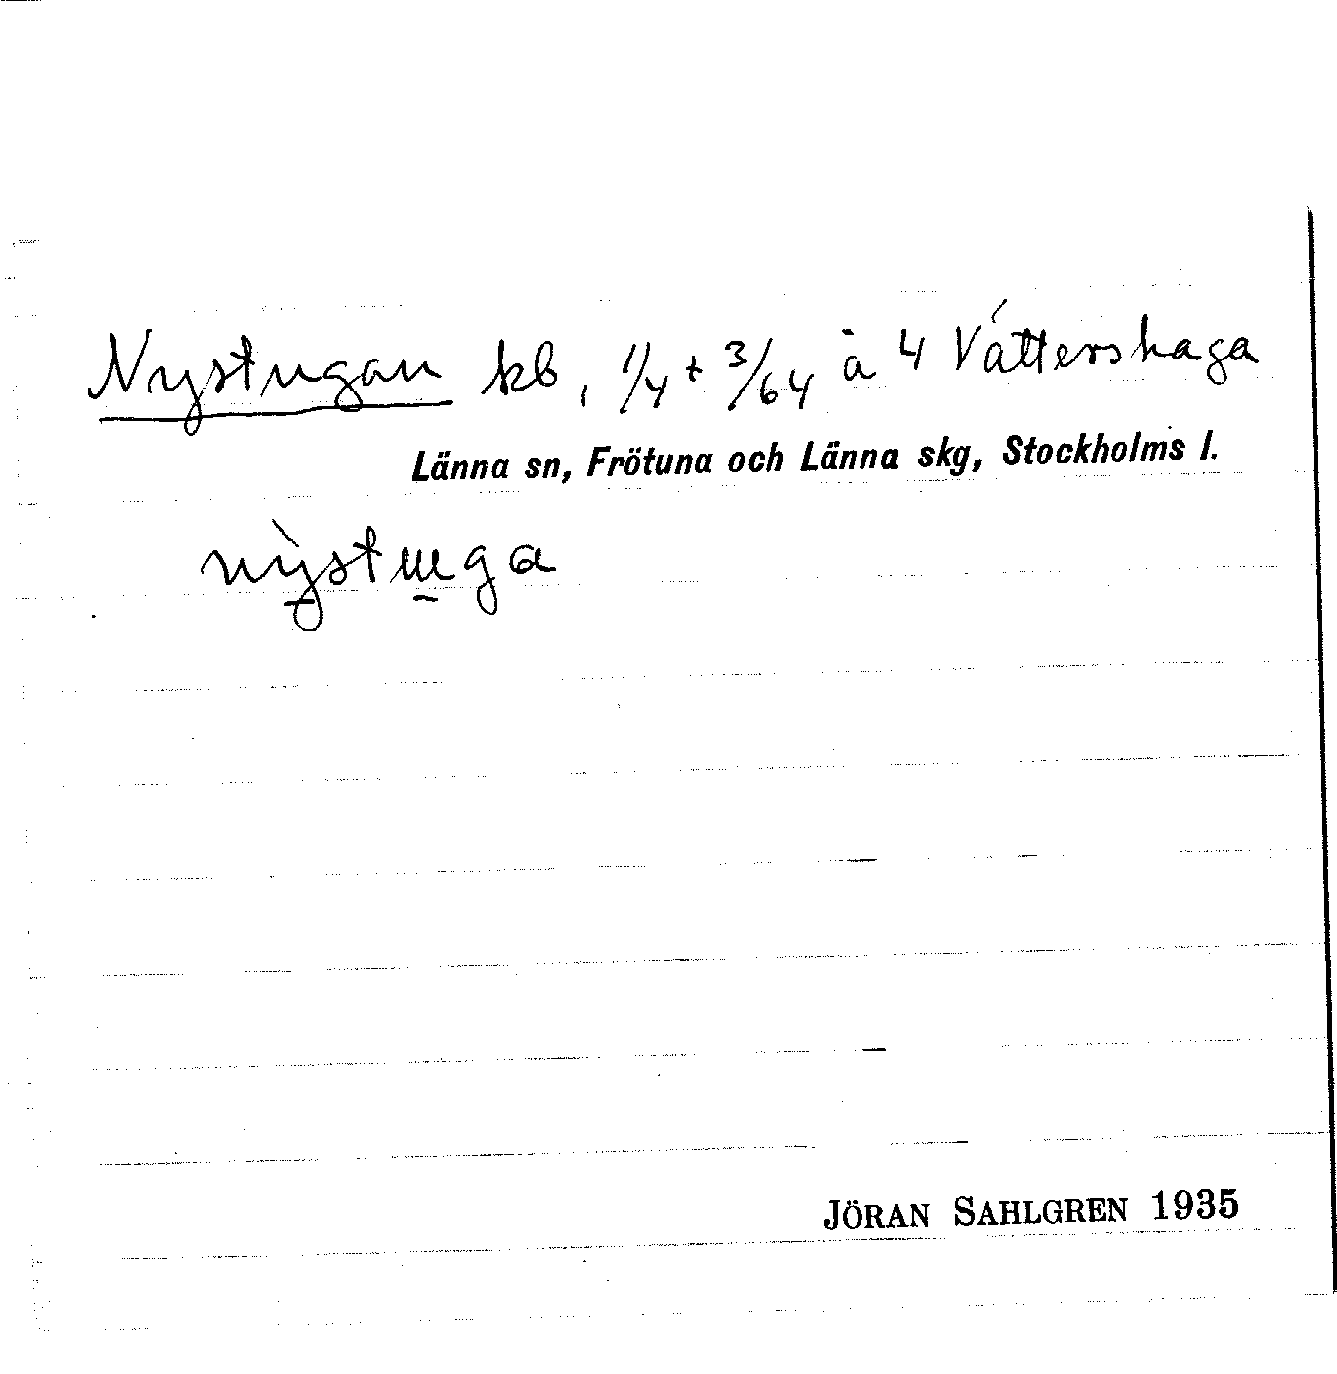 Nystugan kb, 1/4 + 3/64 à 4 Váttershaga
Länna sn, Frötuna och Länna skg, Stockholms l.
nỳstɯga
JÖRAN SAHLGREN 1935